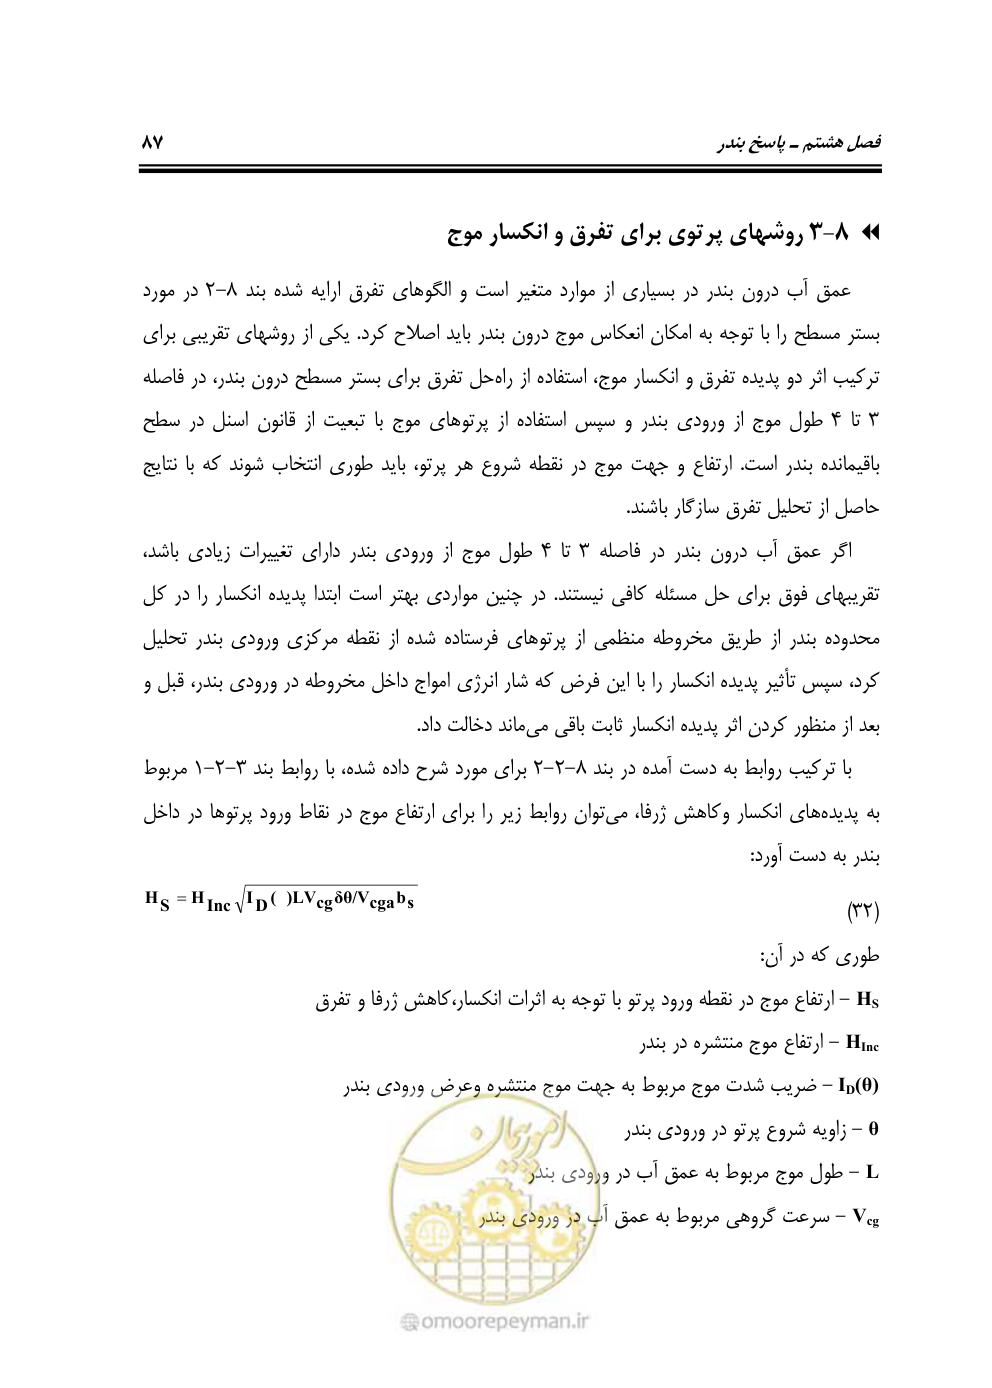 فصل هشتم ـ پاسخ بندر ۸۷
۸-۳ روشهای پرتوی برای تفرق و انکسار موج
عمق آب درون بندر در بسیاری از موارد متغیر است و الگوهای تفرق ارایه شده بند ۸-۲ در مورد
بستر مسطح را با توجه به امکان انعکاس موج درون بندر باید اصلاح کرد. یکی از روشهای تقریبی برای
ترکیب اثر دو پدیده تفرق و انکسار موج، استفاده از راه‌حل تفرق برای بستر مسطح درون بندر، در فاصله
۳ تا ۴ طول موج از ورودی بندر و سپس استفاده از پرتوهای موج با تبعیت از قانون اسنل در سطح
باقیمانده بندر است. ارتفاع و جهت موج در نقطه شروع هر پرتو، باید طوری انتخاب شوند که با نتایج
حاصل از تحلیل تفرق سازگار باشند.
اگر عمق آب درون بندر در فاصله ۳ تا ۴ طول موج از ورودی بندر دارای تغییرات زیادی باشد،
تقریبهای فوق برای حل مسئله کافی نیستند. در چنین مواردی بهتر است ابتدا پدیده انکسار را در کل
محدوده بندر از طریق مخروطه منظمی از پرتوهای فرستاده شده از نقطه مرکزی ورودی بندر تحلیل
کرد، سپس تأثیر پدیده انکسار را با این فرض که شار انرژی امواج داخل مخروطه در ورودی بندر، قبل و
بعد از منظور کردن اثر پدیده انکسار ثابت باقی می‌ماند دخالت داد.
با ترکیب روابط به دست آمده در بند ۸-۲-۲ برای مورد شرح داده شده، با روابط بند ۳-۲-۱ مربوط
به پدیده‌های انکسار وکاهش ژرفا، می‌توان روابط زیر را برای ارتفاع موج در نقاط ورود پرتوها در داخل
بندر به دست آورد:
H_S = H_Inc √(I_D ( )LV_cg δθ/V_cga b_s)
(۳۲)
طوری که در آن:
H_S – ارتفاع موج در نقطه ورود پرتو با توجه به اثرات انکسار،کاهش ژرفا و تفرق
H_Inc – ارتفاع موج منتشره در بندر
I_D(θ) – ضریب شدت موج مربوط به جهت موج منتشره وعرض ورودی بندر
θ – زاویه شروع پرتو در ورودی بندر
L – طول موج مربوط به عمق آب در ورودی بندر
V_cg – سرعت گروهی مربوط به عمق آب در ورودی بندر
امور پیمان
@omoorepeyman.ir